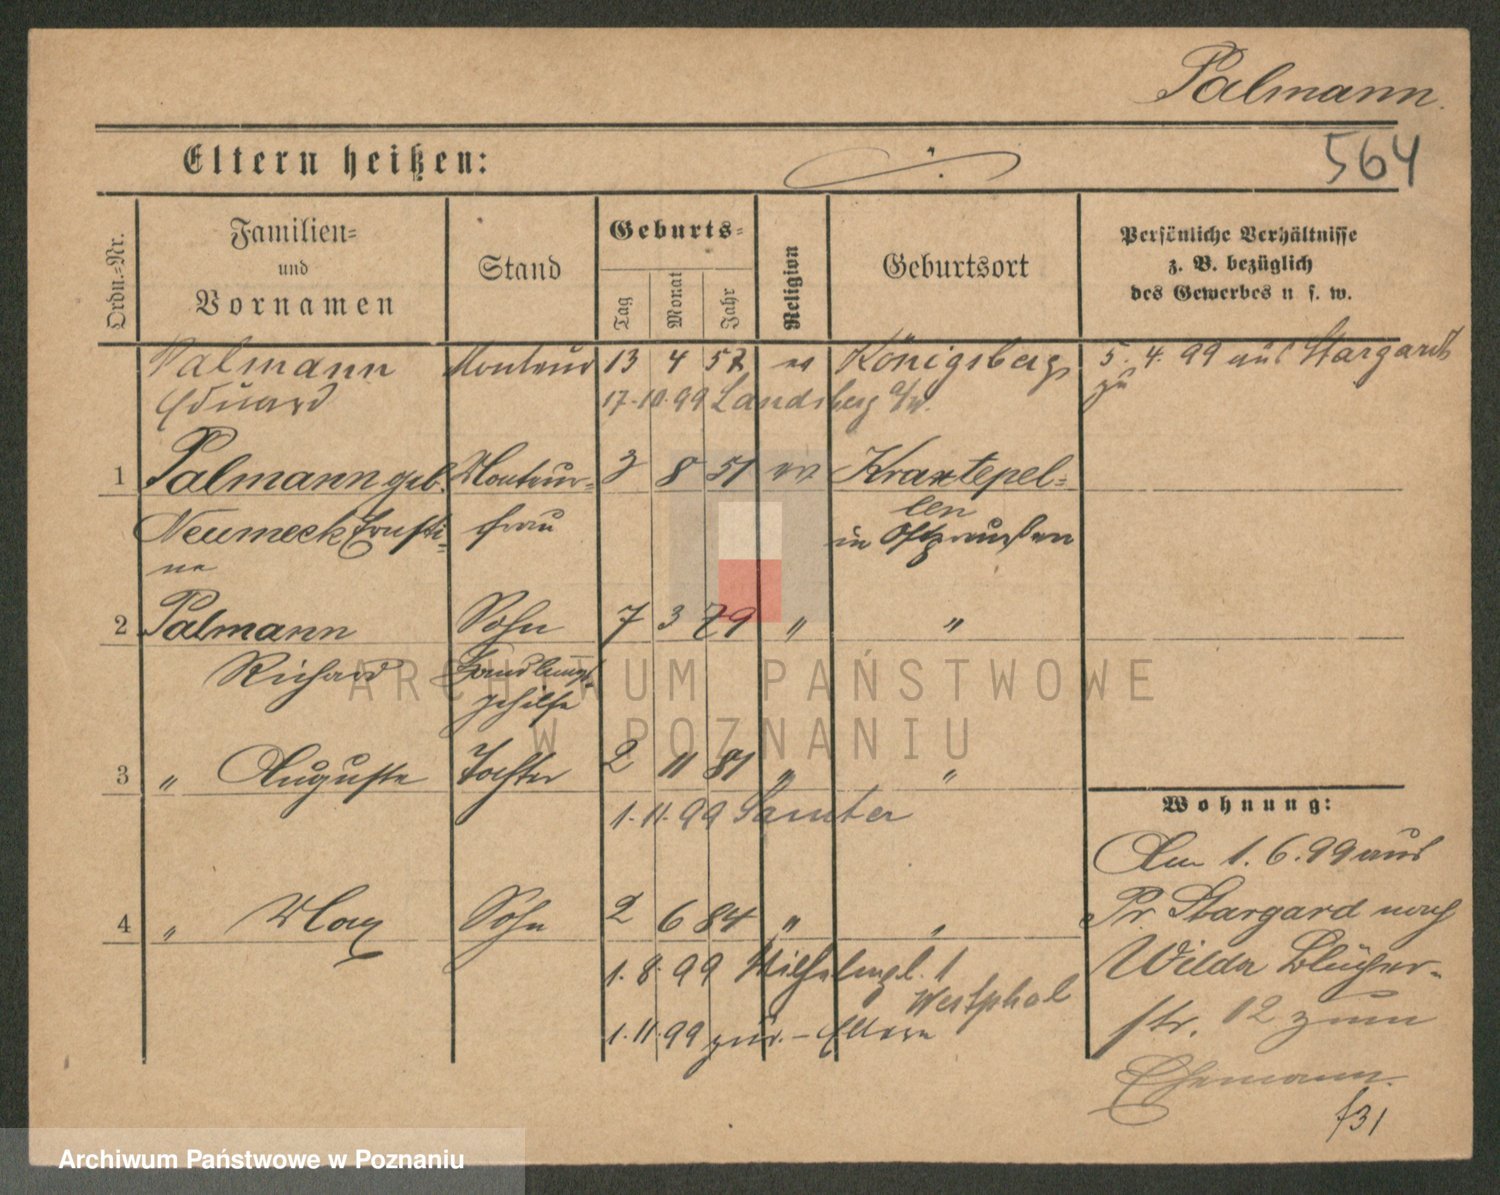 Palmann.
564
Eltern heißen:
Ordn.-Nr.
Familien-
und
Vornamen
Stand
Geburts-
Tag
Monat
Jahr
Religion
Geburtsort
Persönliche Verhältnisse
z. B. bezüglich
des Gewerbes u s. w.
Palmann Monteur 13 4 52 ev Königsberg 5. 4. 99 aus Stargardt
Eduard 17.10.99 Landsberg a/w. zu
1 Palmann geb. Monteur- 3 8 51 ev Kraxtepel-
Neumeck Ernsti- frau len
ne in Ostpreußen
2 Palmann Sohn 7 3 79 " "
Richard Handlungs-
gehilfe
3 " Auguste Tochter 2 11 81 " "
1.11.99 Samter
4 " Max Sohn 2 6 84 " "
1.8.99 1
Westphal
1.11.99 zur. - Eltern
Wohnung:
Am 1.6.99 aus
Pr. Stargard nach
Wilda Blücher-
str. 12 zum
Ehemann.
f31
ARCHIWUM PAŃSTWOWE
W POZNANIU
Archiwum Państwowe w Poznaniu